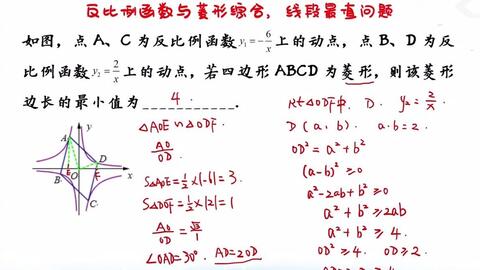 反比例函数与菱形综合，线段最值问题
如图，点 A、C 为反比例函数 y₁=-6/x 上的动点，点 B、D 为反
比例函数 y₂=2/x 上的动点，若四边形 ABCD 为菱形，则该菱形
边长的最小值为 4 .
△AOE ∽ △ODF.
AO/OD
S△AOE=1/2×|-6|=3.
S△ODF=1/2×|2|=1
AO/OD=√3/1
∠OAD=30° AD=2OD
y
A
D
E
O
F
x
B
C
Rt△ODF中. D. y₂=2/x
D(a,b) a·b=2.
OD²=a²+b²
(a-b)²≥0
a²-2ab+b²≥0
a²+b²≥2ab
a²+b²≥4.
OD²≥4. OD≥2.